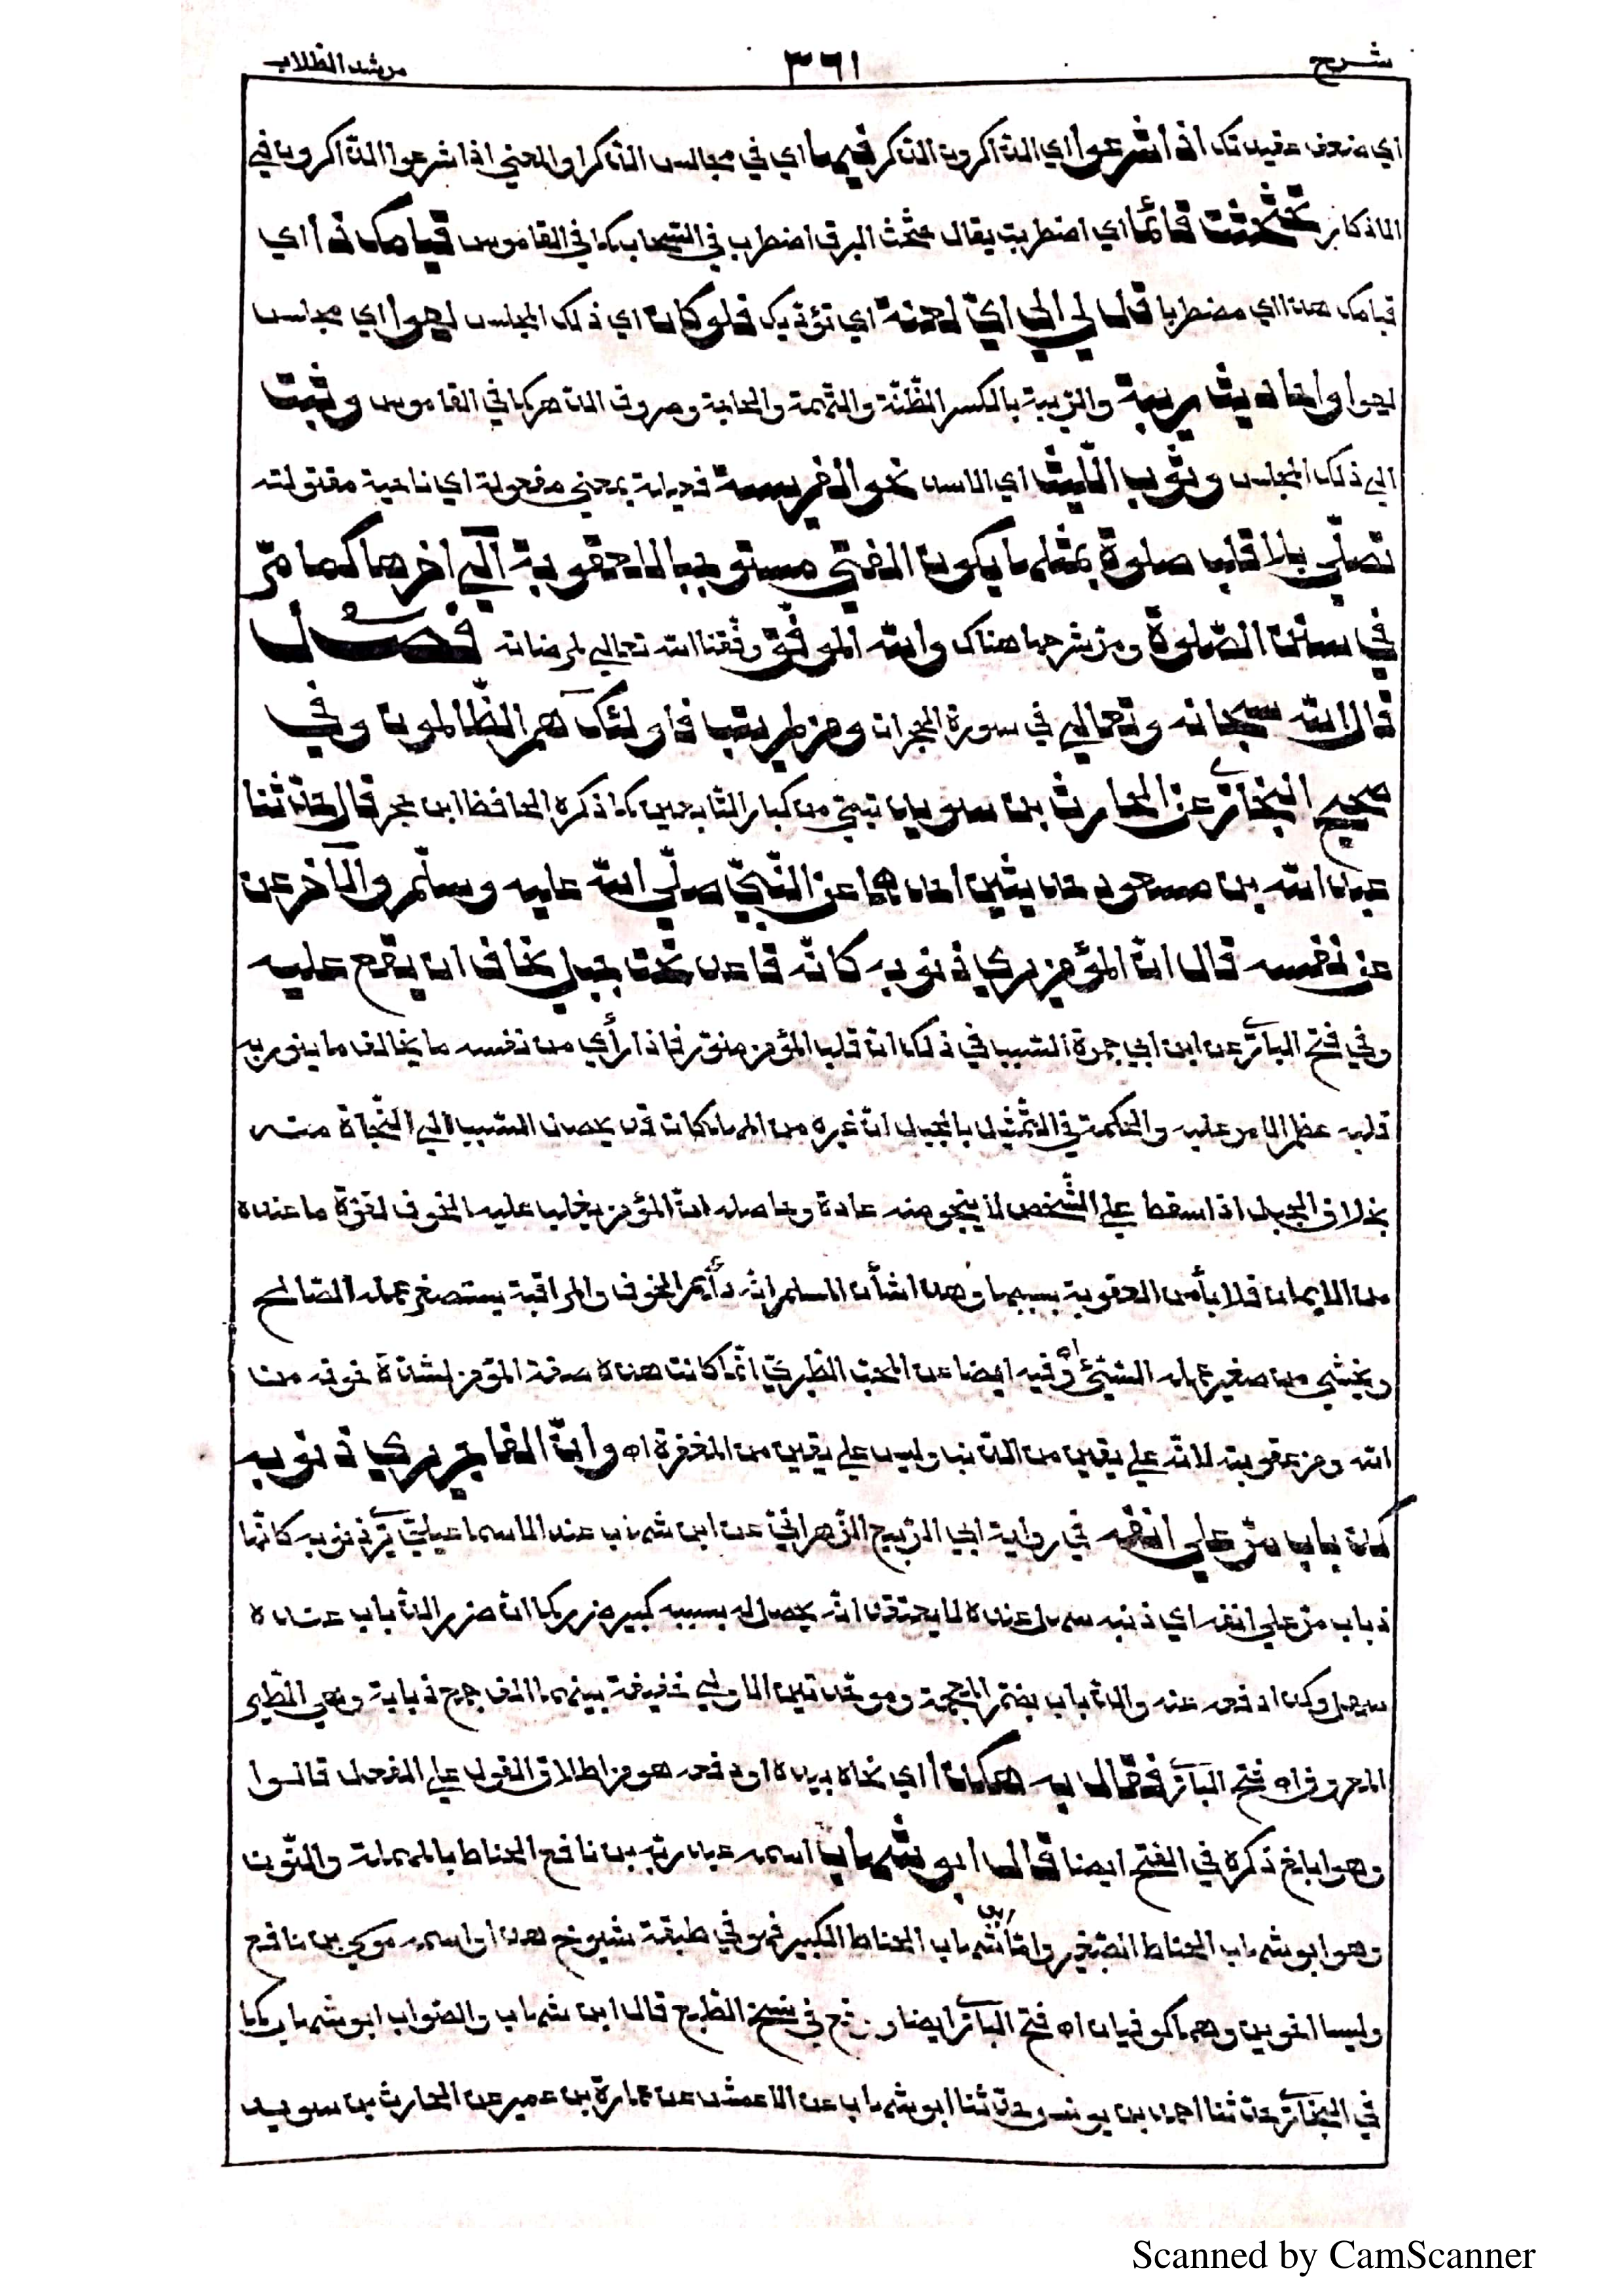 شرح ٣٦١ مرشد الطلاب
اي ضعف عقيدتك اذا شرعوا اي الذاكرون الذكر فيها اي في مجالس الذكر او المعنى اذا شرعوا الذاكرون في
الاذكار تحثحثت قائما اي اضطربت يقال حثحث البرق اضطرب في السحاب كما في القاموس قيامك ذا اي
قيامك هذا اي مضطربا قل لي الى اي لعنة اي تؤديك فلو كان اي ذلك المجلس لهوا اي مجلس
لهوا واحاديث ريبة والريبة بالكسر الظنة والتهمة والحاجة وصروف الدهر كما في القاموس وثبت
الى ذلك المجلس وثوب الليث اي الاسد نحو الفريسة فعيلة بمعنى مفعولة اي ناحية مقتولته
تصلي بلا قلب صلوة بمثلها يكون الفتى مستوجبا للعقوبة الى اخرها كما مر
في سنن الصلوة ومر شرحها هناك والله الموفق وفقنا الله تعالى لمرضاته فصل
قال الله سبحانه وتعالى في سورة الحجرات ومن لم يتب فاولئك هم الظالمون وفي
صحيح البخاري عن الحارث بن سويد تيمي من كبار التابعين كما ذكره الحافظ ابن حجر قال حدثنا
عبد الله بن مسعود حديثين احدهما عن النبي صلى الله عليه وسلم والآخر عن
عن نفسه قال ان المؤمن يرى ذنوبه كانه قاعد تحت جبل يخاف ان يقع عليه
وفي فتح الباري عن ابن ابي جمرة السبب في ذلك ان قلب المؤمن منور فاذا رأى من نفسه ما يخالف ما ينور به
قلبه عظم الامر عليه والحكمة في التمثيل بالجبل ان غيره من المهلكات قد يحصل السبب الى النجاة منه
بخلاف الجبل اذا سقط على الشخص لا ينجو منه عادة وحاصله ان المؤمن يغلب عليه الخوف لقوة ما عنده
من الايمان فلا يأمن العقوبة بسببها وهذا شأن المسلم انه دائم الخوف والمراقبة يستصغر عمله الصالح
ويخشى من صغير عمله السيئ اه وفيه ايضا عن المحب الطبري انما كانت هذه صفة المؤمن لشدة خوفه من
الله ومن عقوبته لانه على يقين من الذنب وليس على يقين من المغفرة اه وان الفاجر يرى ذنوبه
كذباب مر على انفه في رواية ابي الربيع الزهراني عن ابن شهاب عند الاسماعيلي يرى ذنوبه كانها
ذباب مر على انفه اي ذنبه سهل عنده لا يعتقد انه يحصل له بسببه كبير ضرر كما ان ضرر الذباب عنده
سهل وكذا دفعه عنه والذباب بضم المعجمة وموحدتين الاولى خفيفة بينهما الف جمع ذبابة وهي الطير
المعروف اه فتح الباري فقال به هكذا اي نحاه بيده او دفعه هو من اطلاق القول على الفعل قالوا
وهو ابلغ ذكره في الفتح ايضا قال ابو شهاب اسمه عبد ربه بن نافع الحناط بالمهملة والنون
وهو ابو شهاب الحناط الصغير واما ابو شهاب الحناط الكبير فهو في طبقة شيوخ هذا واسمه موسى بن نافع
وليسا اخوين وهما كوفيان اه فتح الباري ايضا في نسخ الطبع قال ابن شهاب والصواب ابو شهاب كما
في البخاري حدثنا احمد بن يونس حدثنا ابو شهاب عن الاعمش عن عمارة بن عمير عن الحارث بن سويد
Scanned by CamScanner